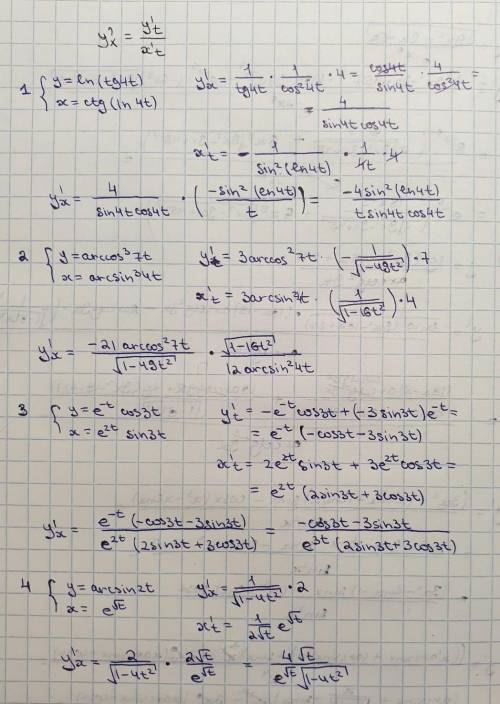 y'x = y't / x't
1 { y = ln(tg4t)   y'x = 1/tg4t · 1/cos²4t · 4 = cos4t/sin4t · 4/cos²4t =
x = ctg(ln4t)   = 4/(sin4t cos4t)
x't = - 1/sin²(ln4t) · 1/4t · 4
y'x = 4/(sin4t cos4t) · (-sin²(ln4t)/t) = -4sin²(ln4t)/(t sin4t cos4t)
2 { y = arccos³7t   y't = 3arccos²7t · (-1/√(1-49t²)) · 7
x = arcsin³4t   x't = 3arcsin²4t · (1/√(1-16t²)) · 4
y'x = -21arccos²7t/√(1-49t²) · √(1-16t²)/(12arcsin²4t)
3 { y = e^-t cos3t   y't = -e^-t cos3t + (-3sin3t)e^-t =
x = e^2t sin3t   = e^-t (-cos3t - 3sin3t)
x't = 2e^2t sin3t + 3e^2t cos3t =
= e^2t (2sin3t + 3cos3t)
y'x = e^-t (-cos3t - 3sin3t)/(e^2t (2sin3t + 3cos3t)) = (-cos3t - 3sin3t)/(e^3t (2sin3t + 3cos3t))
4 { y = arcsin2t   y'x = 1/√(1-4t²) · 2
x = e^√t   x't = 1/(2√t) e^√t
y'x = 2/√(1-4t²) · 2√t/e^√t = 4√t/(e^√t √(1-4t²))